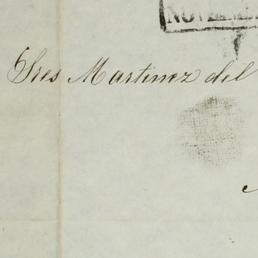 Sres Martinez del